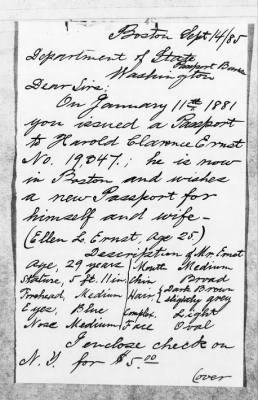 Boston Sept 14/85
Department of State
Passport Bureau
Washington
Dear Sirs:
On January 11th 1881
you issued a Passport
to Harold Clarence Ernst
No. 19,047.; he is now
in Boston and wishes
a new Passport for
himself and wife -
(Ellen L. Ernst, Age 25.)
Description of Mr. Ernst
Age, 29 years Mouth Medium
Stature, 5 ft. 11 in Chin Broad
Forehead, Medium Hair, {Dark Brown
slightly grey
Eyes, Blue Complex. Light
Nose Medium Face Oval
I enclose check on
N.Y. for $5.00
Cover